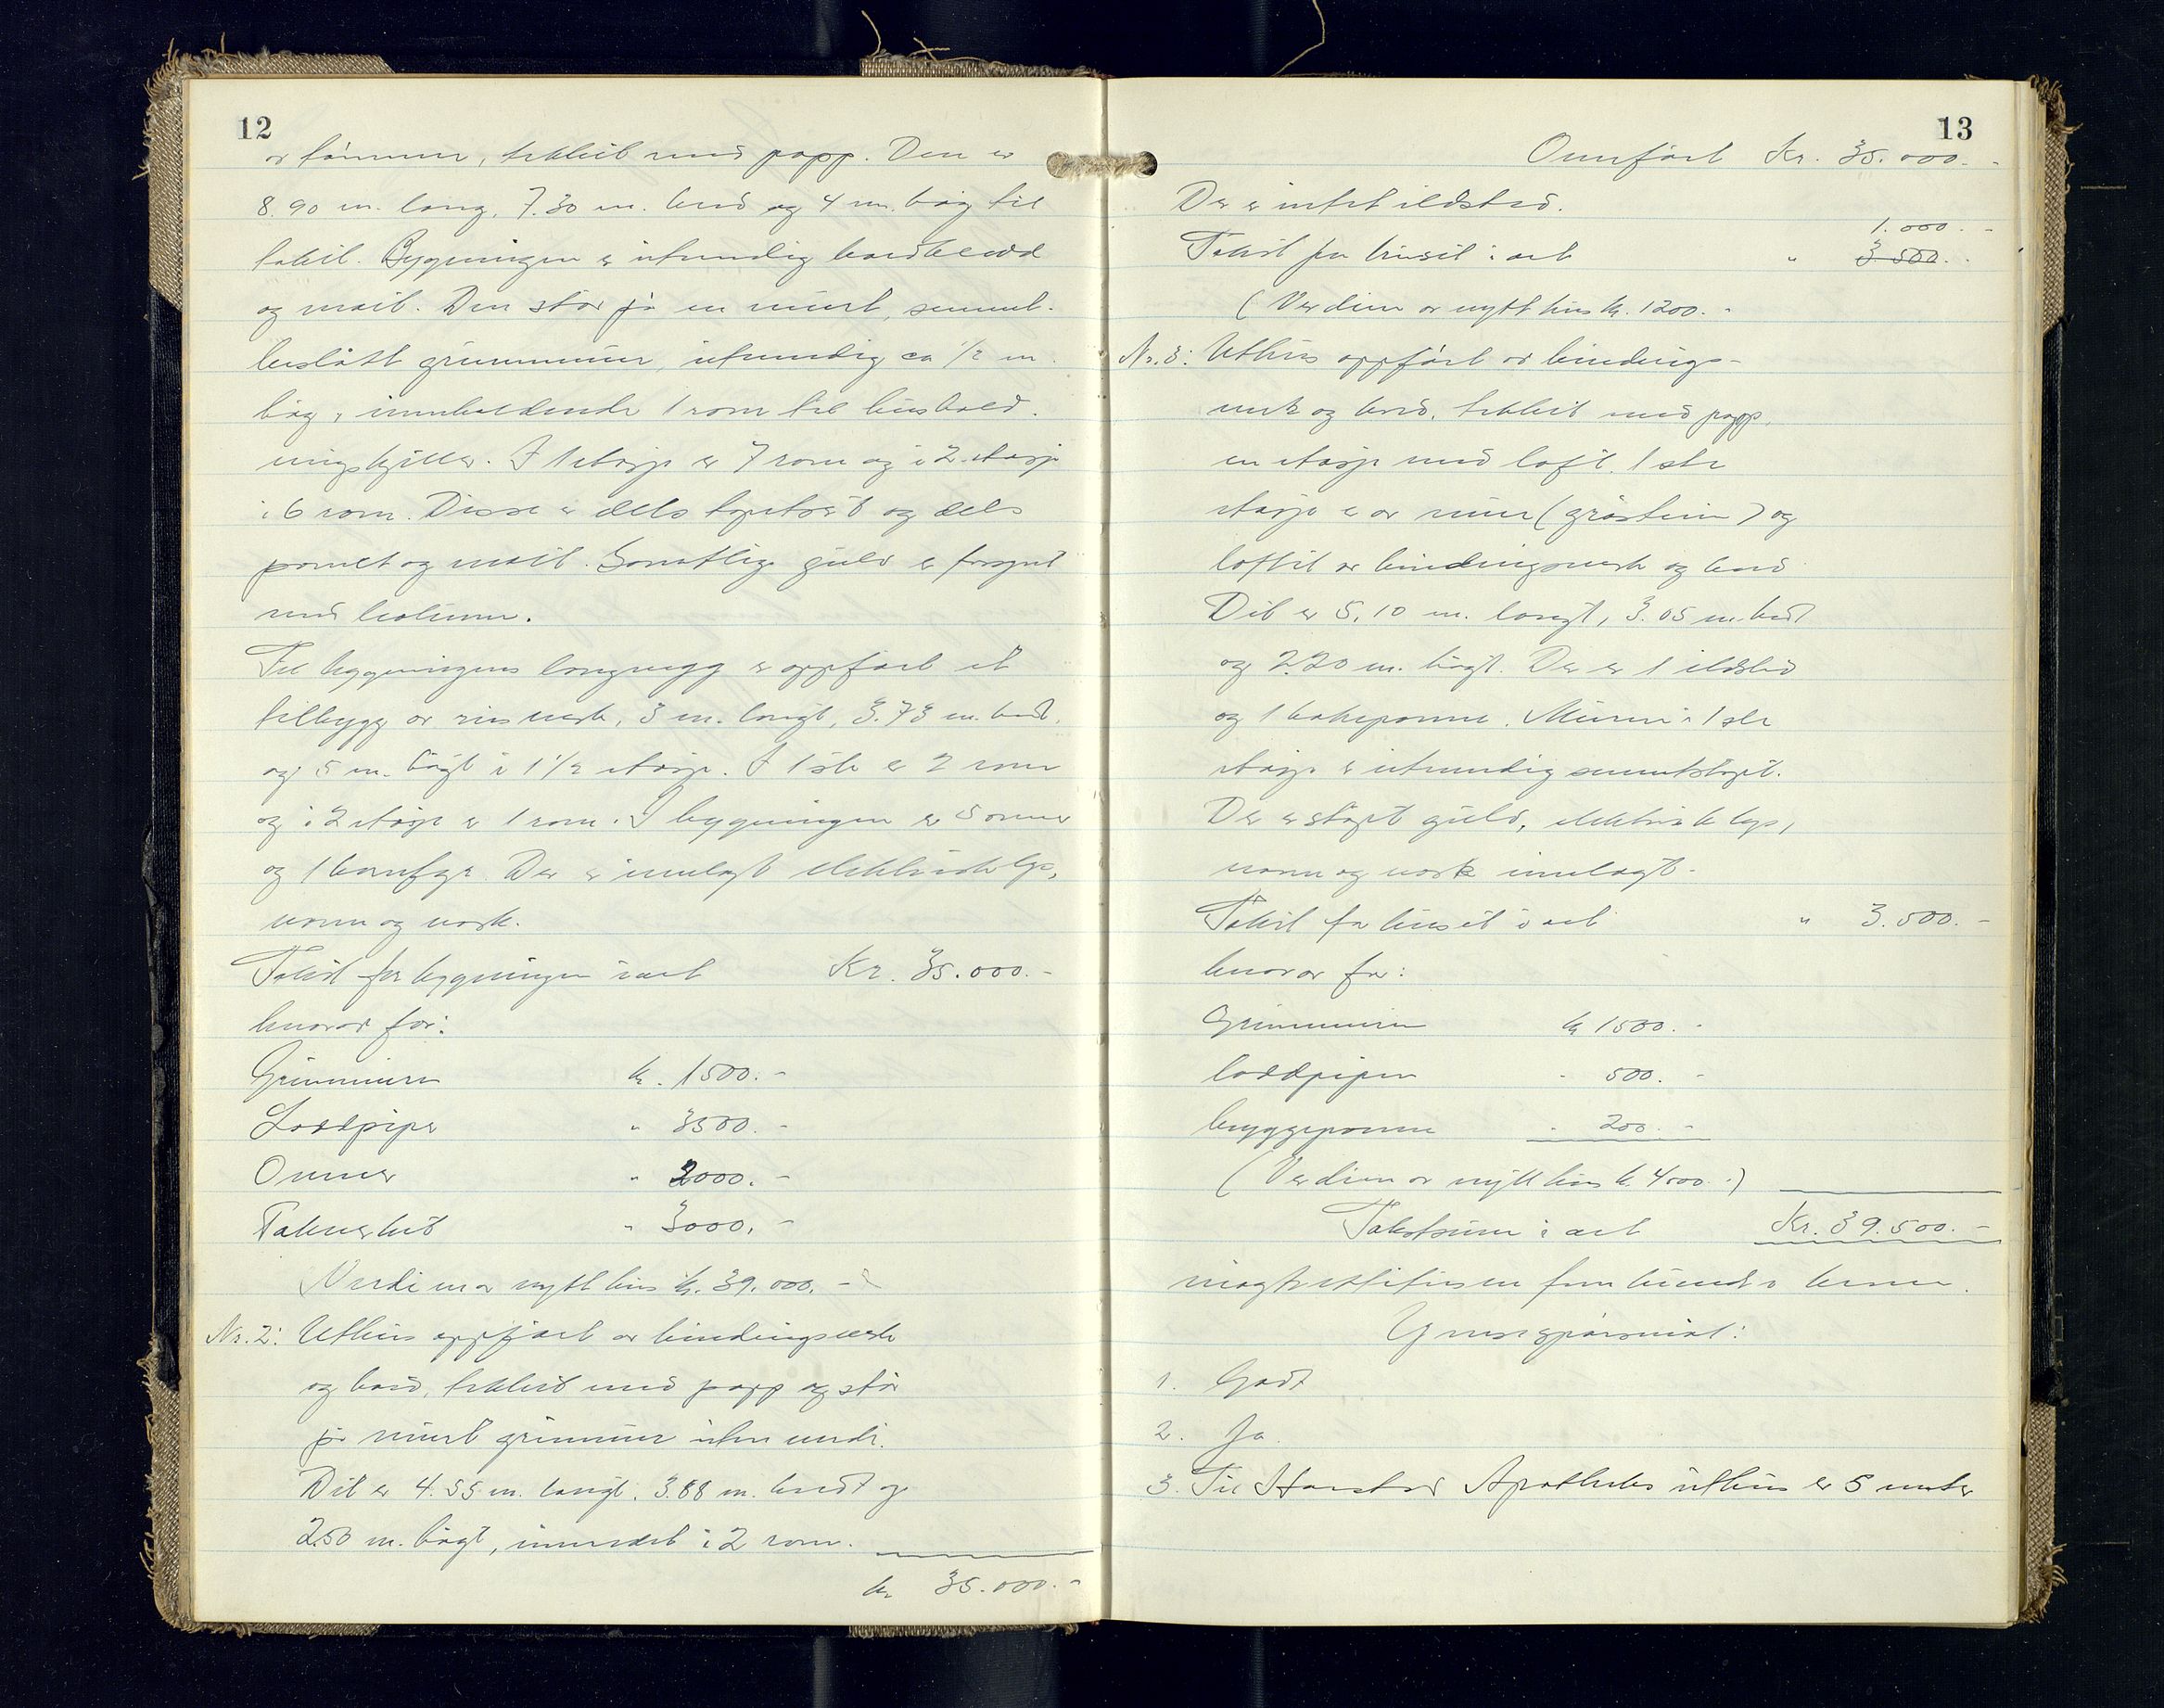 12
av tømmer, tekket med papp. Den er
8.90 m. lang, 7.30 m. bred og 4 m. høg til
taket. Bygningen er utvendig bordkledd
og malt. Den står på en murt, sement-
beslått grunnmur, utvendig ca ½ m.
høg, inneholdende 1 rom til hushold-
ningskjeller. I 1 etasje er 7 rom og i 2. etasje
i 6 rom. Disse er dels tapetsert og dels
panelt og malt. Samtlige gulv er forsynt
med
Til bygningens langvegg er oppført et
tilbygg av reisverk, 3 m. langt, 3.73 m. bredt,
og 5 m. høgt i 1 ½ etasje. I 1ste er 2 rom
og i 2 etasje er 1 rom. I bygningen er 5 ovner
og 1 komfyr. Der er innlagt elektrisk lys,
vann og vask.
Takst for bygningen i alt Kr. 35.000.-
hvorav for:
Grunnmuren kr. 1500.-
Loddpiper " 3500.-
Ovner " 2000.-
Takverket " 3000.-
Verdien av nytt hus kr. 39.000.-
Nr. 2: Uthus oppført av bindingsverk
og bord, tekket med papp og står
på murt grunnmur uten verdi.
Det er 4.55 m. langt, 3.88 m. bredt og
2.50 m. høgt, innredet i 2 rom.
kr 35.000.-
13
Overført Kr. 35.000.-
Der er intet ildsted.
1.000.-
Takst for huset i alt " 3.500.-
(Verdien av nytt hus kr. 1200.-
Nr. 3: Uthus oppført av bindings-
verk og bord, tekket med papp,
en etasje med loft. 1ste
etasje er av mur (gråstein) og
loftet av bindingsverk og bord
Det er 5.10 m. langt, 3.05 m. bredt
og 2.20 m. høgt. Der er 1 ildsted
og 1 bakepanne. Muren i 1ste
etasje er utvendig sementstøpt.
Der er støpt gulv, elektrisk lys,
vann og vask innlagt.
Takst for huset i alt " 3.500.-
hvorav for:
Grunnmuren kr 1500.-
loddpipen " 500.-
bryggepanne " 200.-
(Verdien av nytt hus kr. 4000.-)
Takstsum i alt Kr. 39.500.-
hundre kroner.
1. Godt
2. Ja.
3. Til Harstad Apotheks uthus er 5 meter